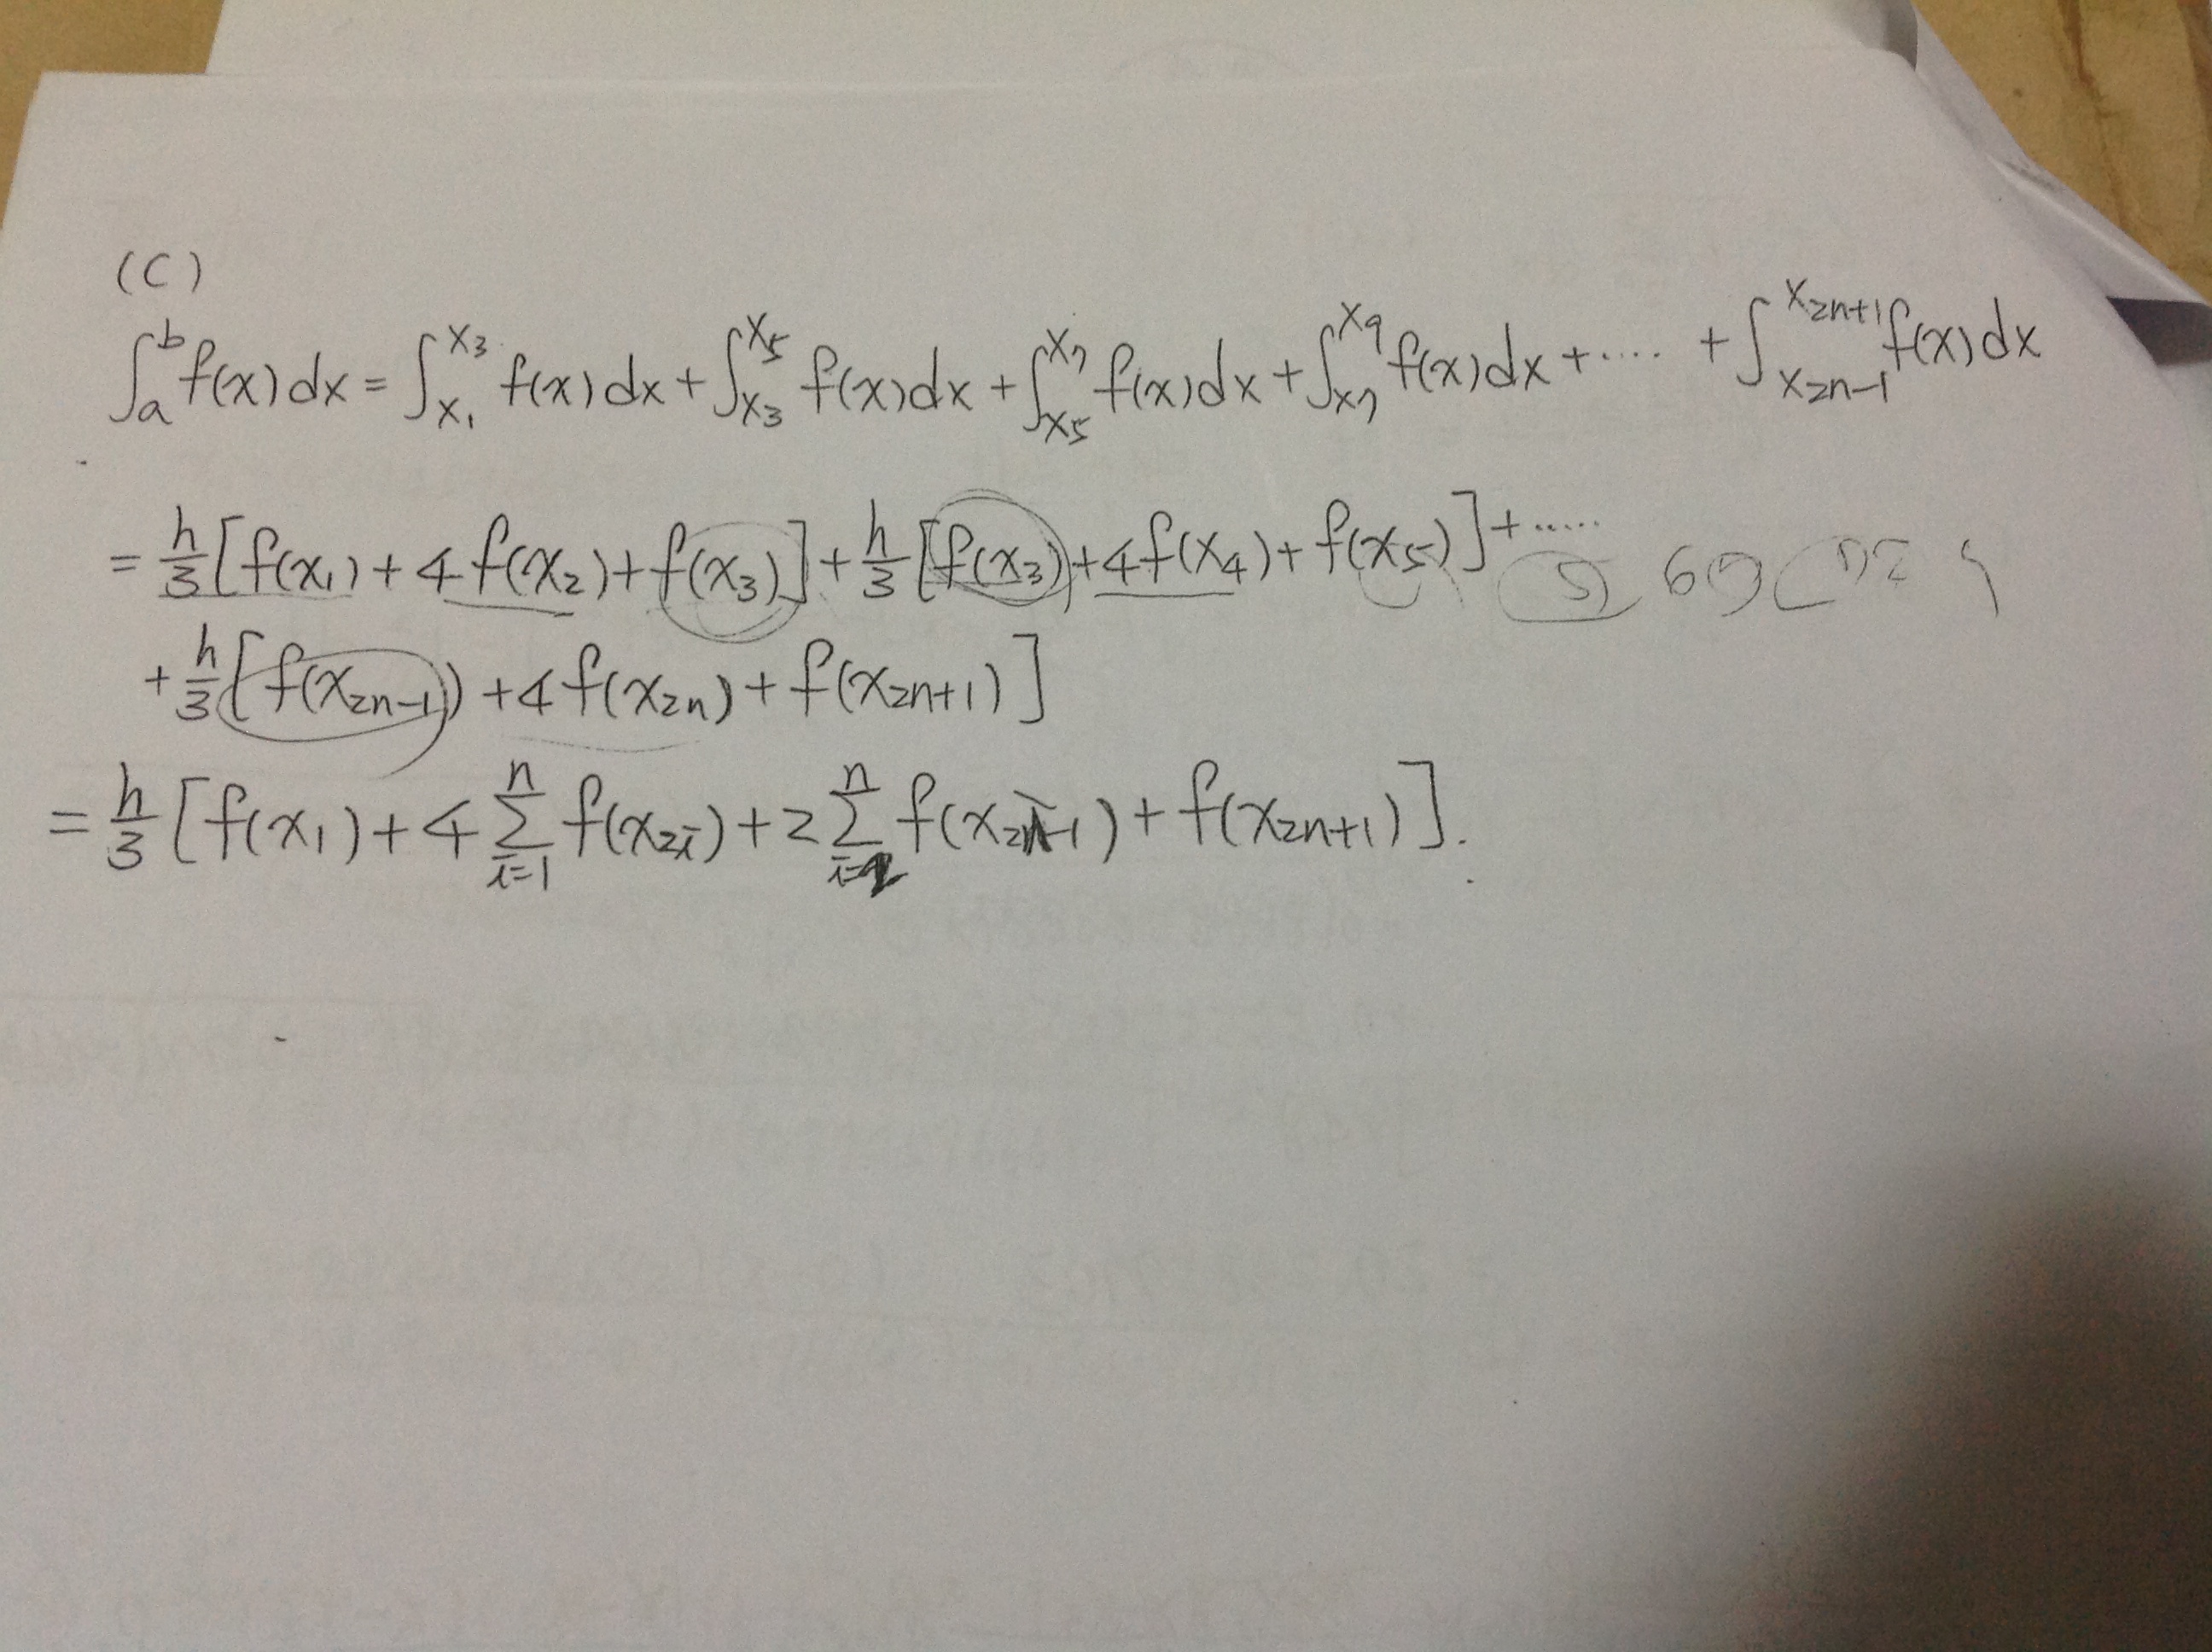 (C)
∫_a^b f(x)dx = ∫_{x₁}^{x₃} f(x)dx + ∫_{x₃}^{x₅} f(x)dx + ∫_{x₅}^{x₇} f(x)dx + ∫_{x₇}^{x₉} f(x)dx + ···· + ∫_{x_{2n-1}}^{x_{2n+1}} f(x)dx
= h/3 [f(x₁) + 4f(x₂) + f(x₃)] + h/3 [f(x₃) + 4f(x₄) + f(x₅)] + ·····
+ h/3 [f(x_{2n-1}) + 4f(x_{2n}) + f(x_{2n+1})]
= h/3 [f(x₁) + 4 Σ_{i=1}^{n} f(x_{2i}) + 2 Σ_{i=2}^{n} f(x_{2i-1}) + f(x_{2n+1})].